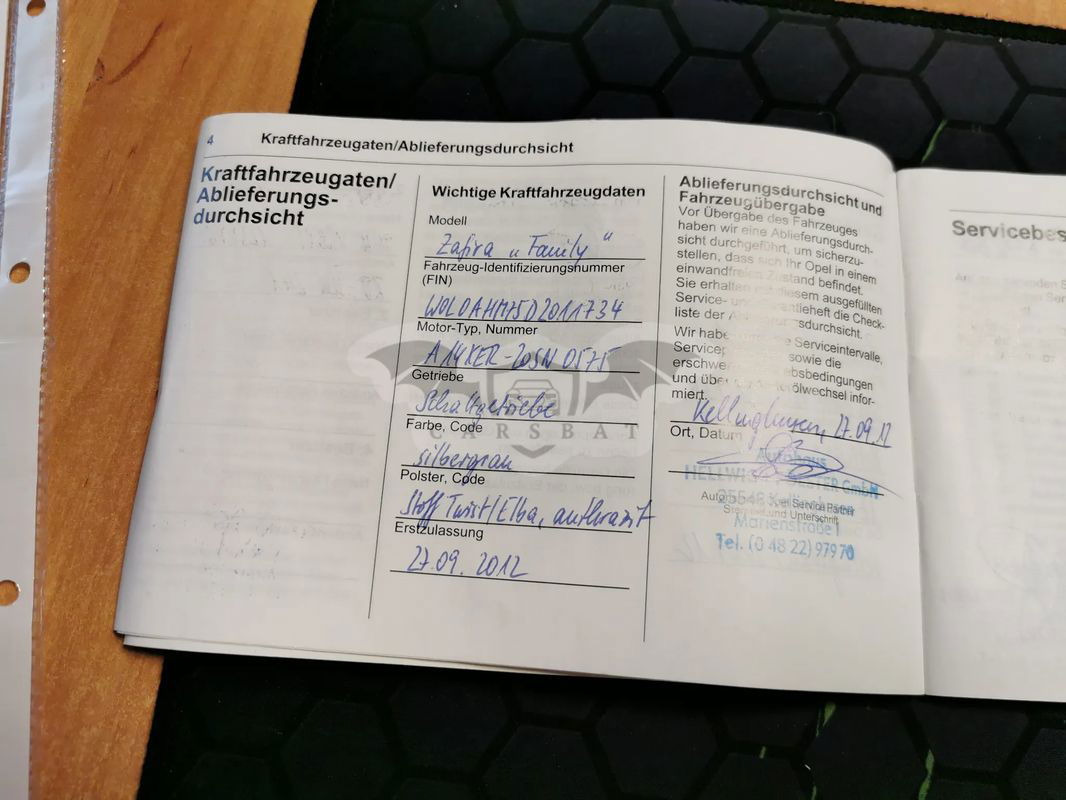 4
Kraftfahrzeugaten/Ablieferungsdurchsicht
Kraftfahrzeugaten/
Ablieferungs-
durchsicht
Wichtige Kraftfahrzeugdaten
Modell
Zafira „Family"
Fahrzeug-Identifizierungsnummer
(FIN)
W0L0AHM75D2011734
Motor-Typ, Nummer
A14XER-20SN0575
Getriebe
Schaltgetriebe
Farbe, Code
silbergrau
Polster, Code
Stoff Twist/Elba, anthrazit
Erstzulassung
27.09.2012
Ablieferungsdurchsicht und
Fahrzeugübergabe
Vor Übergabe des Fahrzeuges
haben wir eine Ablieferungsdurch-
sicht durchgeführt, um sicherzu-
stellen, dass sich Ihr Opel in einem
einwandfreien Zustand befindet.
Sie erhalten mit diesem ausgefüllten
Service- und die Check-
liste der
Wir Serviceintervalle,
sowie die
und infor-
miert.
Kellinghusen, 27.09.12
Ort, Datum
Autohaus
GmbH
25548 Kellinghusen
Opel Service Partner
Stempel und Unterschrift
Marienstraße 1
Tel. (0 48 22) 979 70
CARSBAT